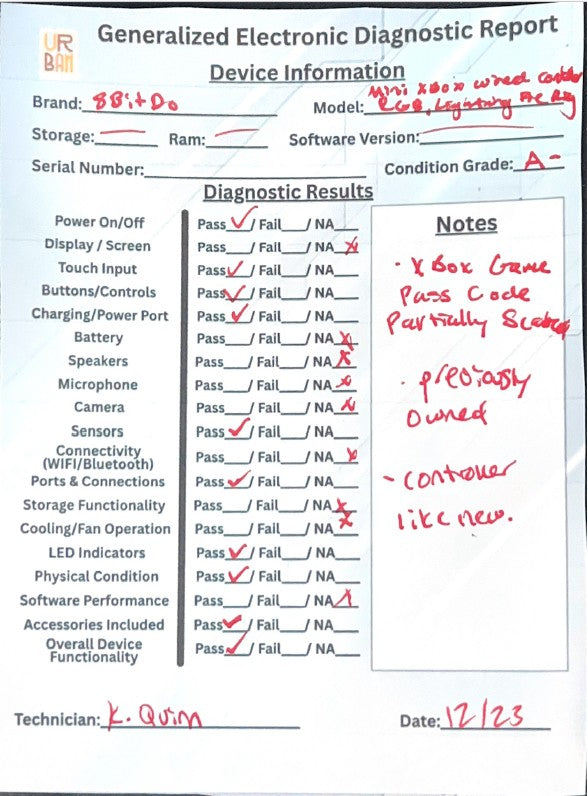 UR
BAN
Generalized Electronic Diagnostic Report
Device Information
Brand: 8BitDo
Model: Mini XBox wired
RGB, Lightning
Storage:____ Ram:____ Software Version:____
Serial Number:____ Condition Grade: A-
Diagnostic Results
Power On/Off Pass ✓/ Fail___/ NA___
Display / Screen Pass___/ Fail___/ NA x
Touch Input Pass ✓/ Fail___/ NA___
Buttons/Controls Pass ✓/ Fail___/ NA___
Charging/Power Port Pass ✓/ Fail___/ NA___
Battery Pass___/ Fail___/ NA x
Speakers Pass___/ Fail___/ NA x
Microphone Pass___/ Fail___/ NA x
Camera Pass___/ Fail___/ NA x
Sensors Pass ✓/ Fail___/ NA___
Connectivity
(WIFI/Bluetooth) Pass___/ Fail___/ NA x
Ports & Connections Pass ✓/ Fail___/ NA___
Storage Functionality Pass___/ Fail___/ NA x
Cooling/Fan Operation Pass___/ Fail___/ NA x
LED Indicators Pass ✓/ Fail___/ NA___
Physical Condition Pass ✓/ Fail___/ NA___
Software Performance Pass___/ Fail___/ NA x
Accessories Included Pass ✓/ Fail___/ NA___
Overall Device
Functionality Pass ✓/ Fail___/ NA___
Notes
· XBox Game
Pass Code
Partially
· previously
owned
- controller
like new.
Technician: K. Quinn
Date: 12/23